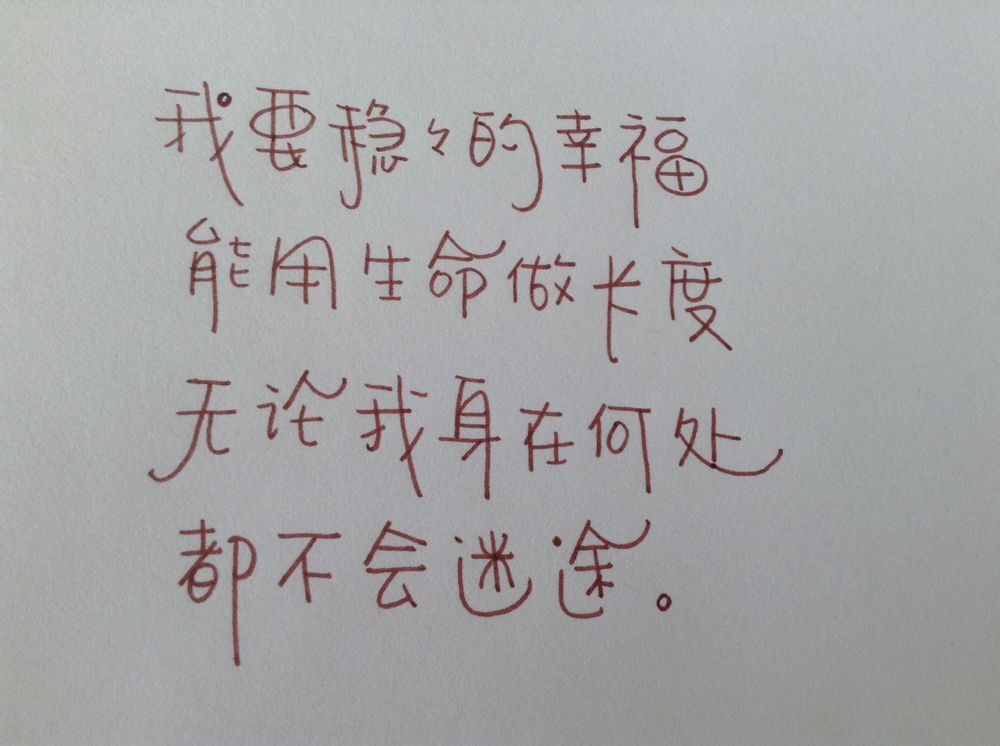 我要稳々的幸福
能用生命做长度
无论我身在何处
都不会迷途。